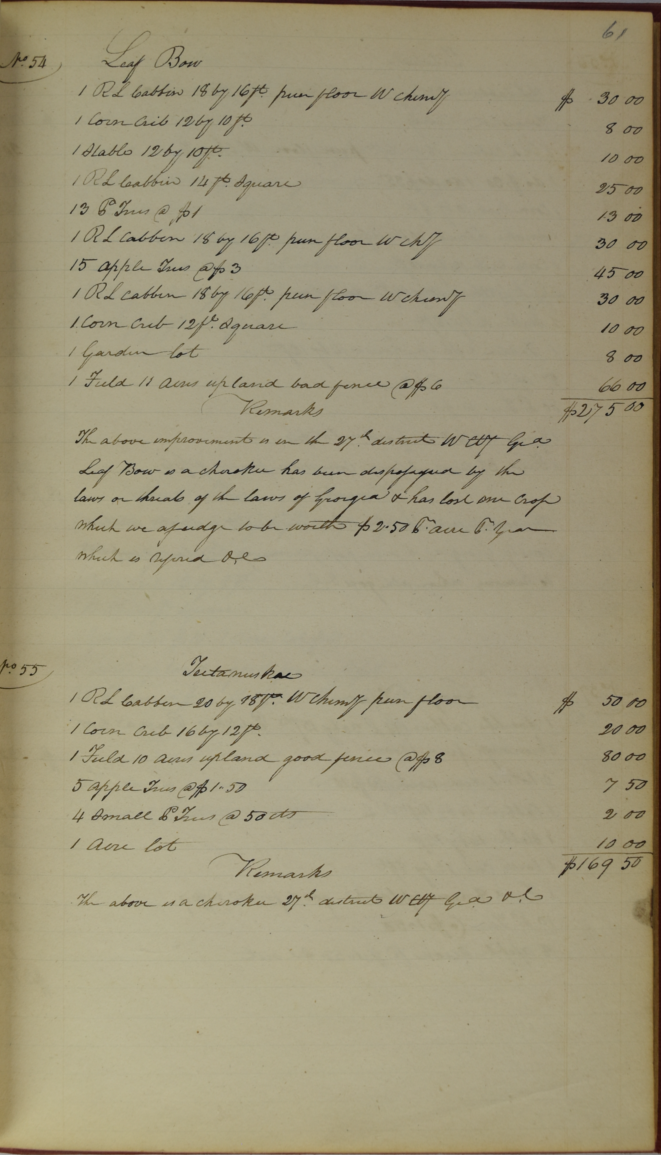 61
No. 54 Leaf Bow
1 R L Cabbin 18 by 16 ft. pun floor W chimy $ 30 00
1 Corn Crib 12 by 10 ft. 8 00
1 Stable 12 by 10 ft. 10 00
1 R L Cabbin 14 ft. Square 25 00
13 P Trees @ $1 13 00
1 R L Cabbin 18 by 16 ft pun floor W chy 30 00
15 apple Trees @ $3 45 00
1 R L cabbin 18 by 16 ft. pun floor W chimy 30 00
1 Corn Crib 12 ft. Square 10 00
1 Garden lot 8 00
1 Field 11 Acres upland bad fence @ $6 66 00
Remarks $275 00
The above improvement is in the 27th district W Cty Geo.
Leaf Bow is a cherokee has been dispossessed by the
laws or threats of the laws of Georgia & has lost one Crop
which we adjudge to be worth $2.50 Pr acre Pr Year
which is &c
No 55
1 R L Cabbin 20 by 18 ft. W chimy pun floor $ 50 00
1 Corn Crib 16 by 12 ft. 20 00
1 Field 10 Acres upland good fence @ $8 80 00
5 apple Trees @ $1.50 7 50
4 Small P Trees @ 50 cts 2 00
1 Acre lot 10 00
Remarks $169 50
The above is a cherokee 27th district W Cty Geo &c